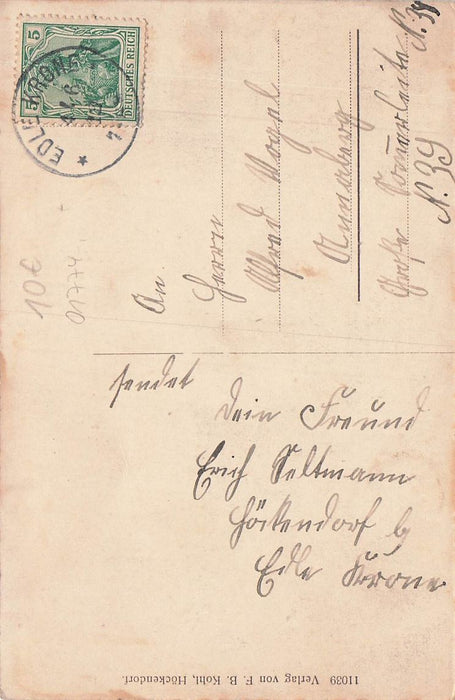 5
DEUTSCHES REICH
EDLE KRONE
An.
Herrn
Alfred Vogel
Annaberg
Große Sommerleite N. 39
N. 39
10€
01774
sendet
Dein Freund
Erich Seltmann
Höckendorf b/
Edle Krone
11039 Verlag von F. B. Kohl, Höckendorf.